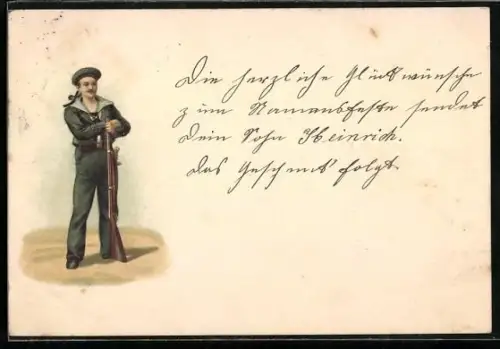 Die herzliche Glückwünsche
zum Namensfeste sendet
Dein Sohn Heinrich.
das Geschenk folgt